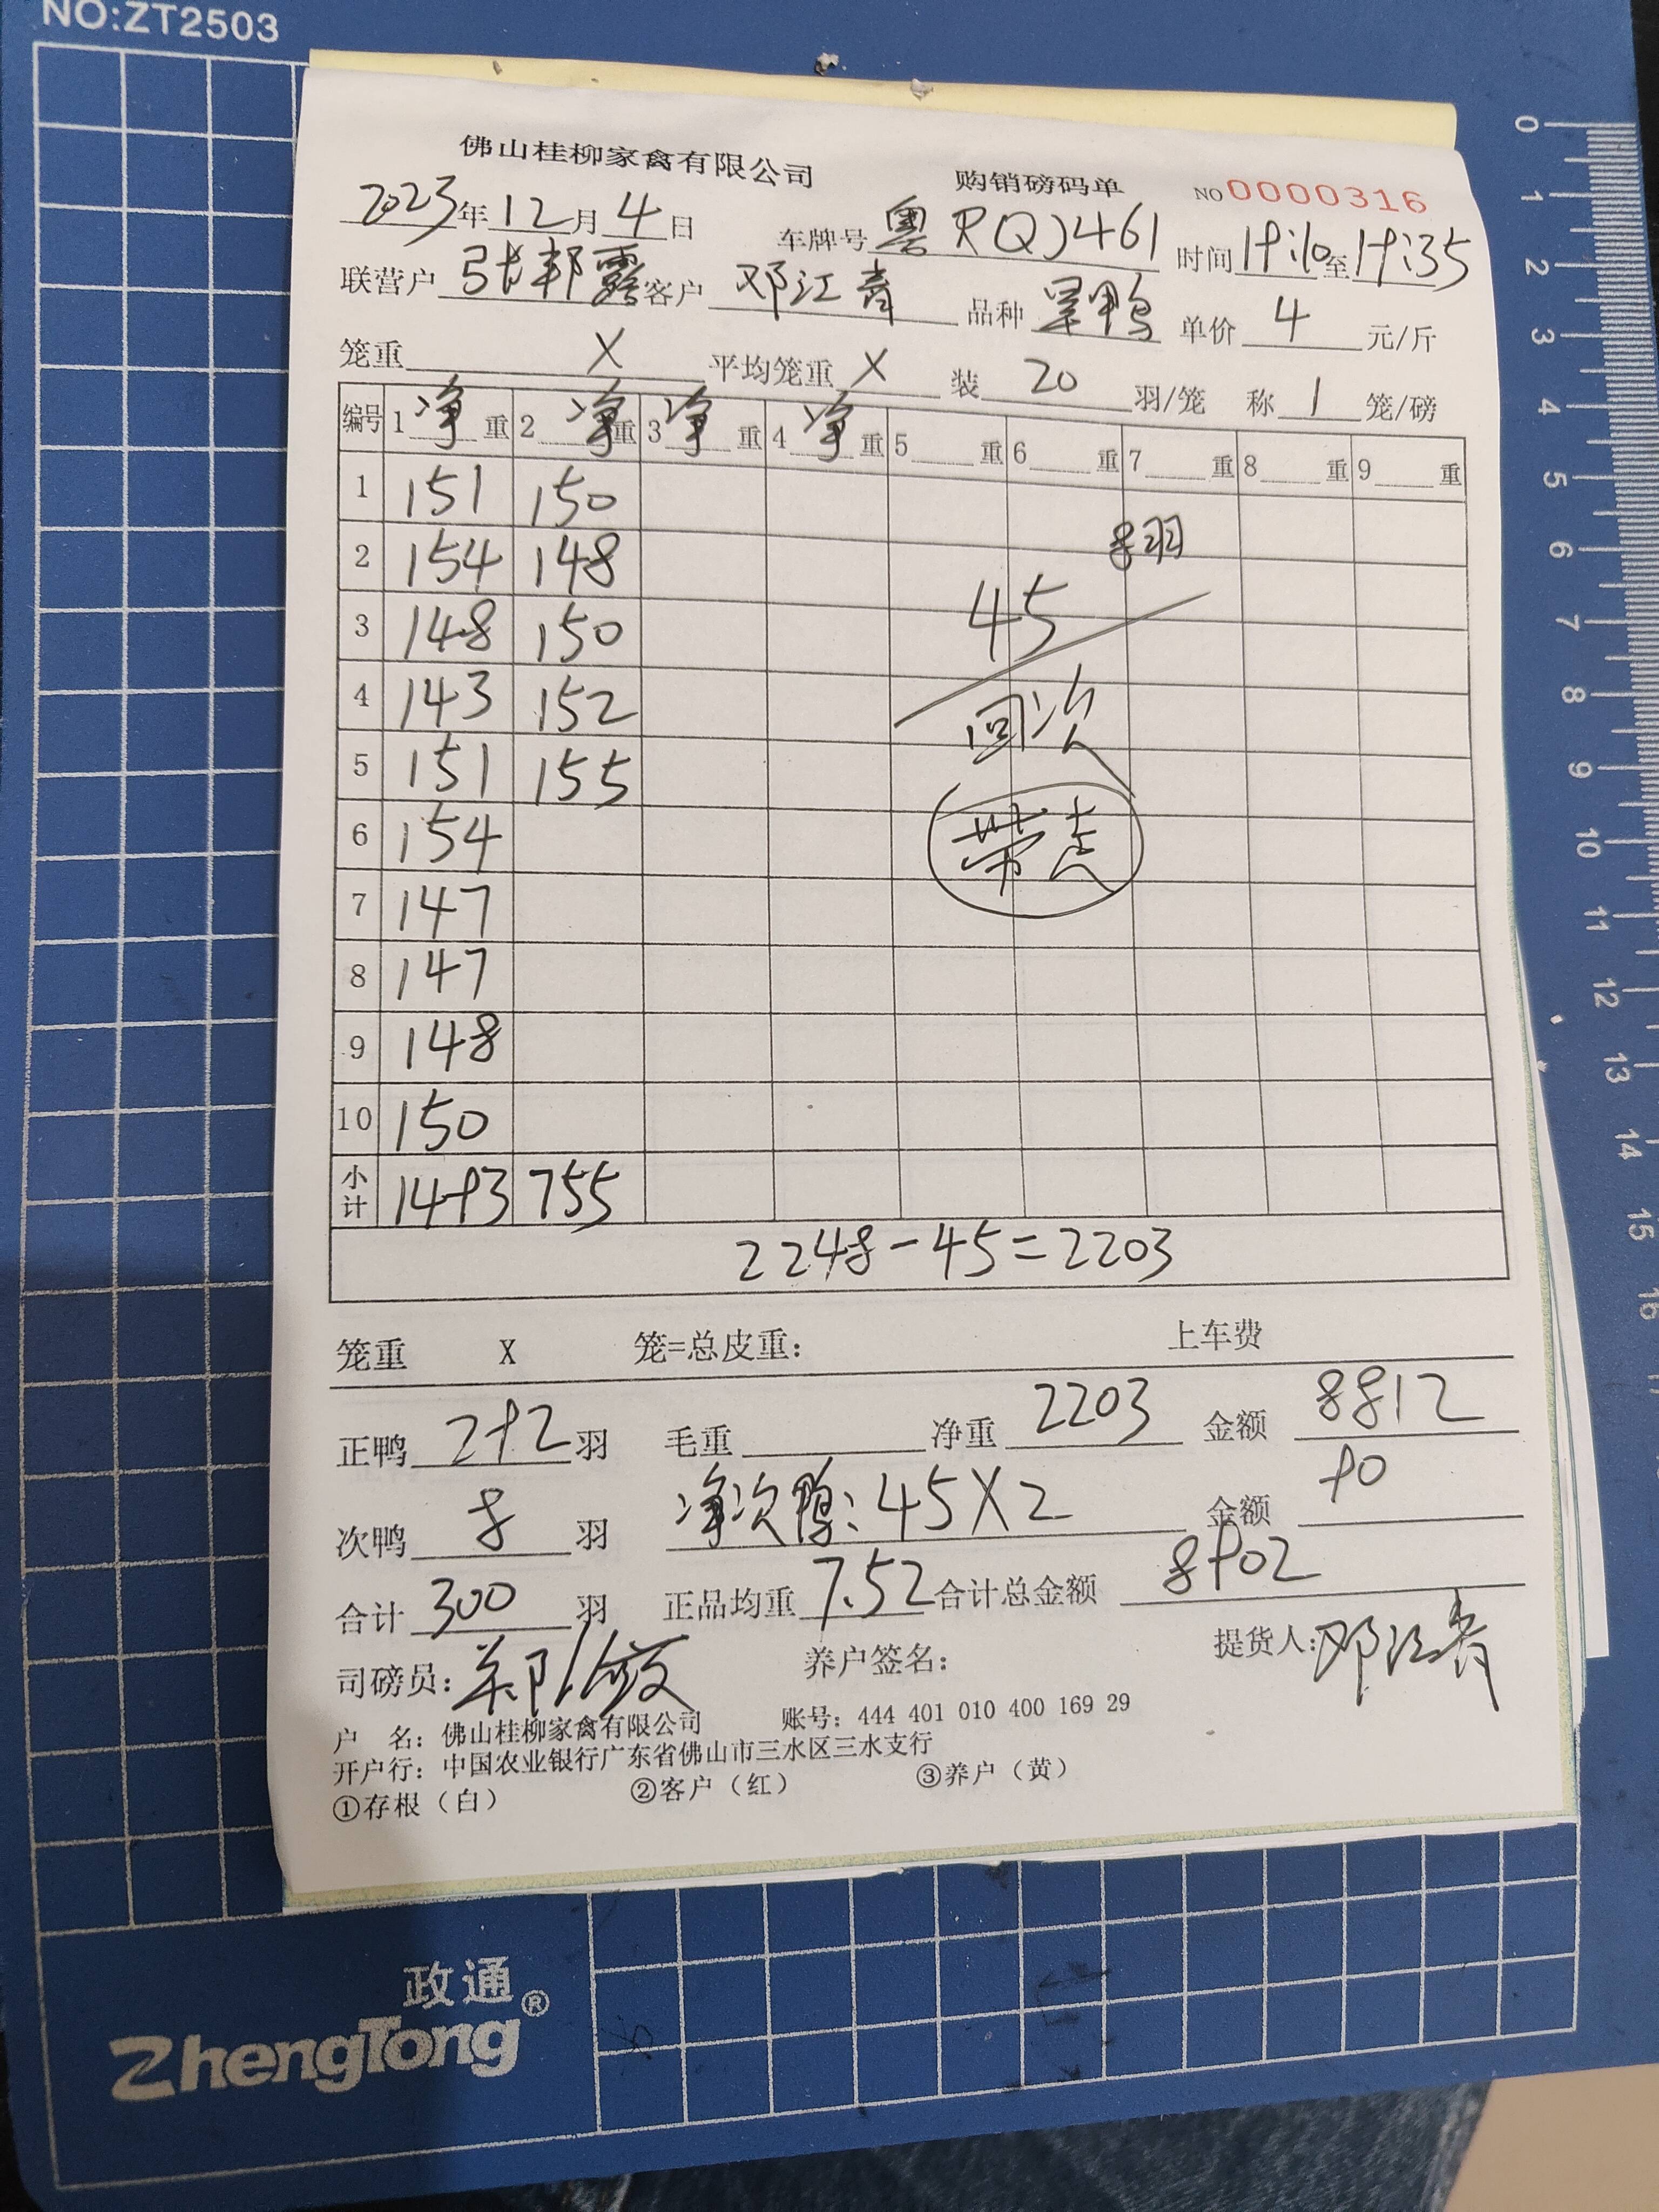 NO:ZT2503
佛山桂柳家禽有限公司 购销磅码单 NO 0000316
2023年12月4日 车牌号 粤RQJ461 时间 19:10至19:35
联营户 张邦露 客户 邓江青 品种 黑鸭 单价 4 元/斤
笼重 X 平均笼重 X 装 20 羽/笼 称 1 笼/磅
编号 1 净 重 2 净 重 3 净 重 4 净 重 5 重 6 重 7 重 8 重 9 重
1 151 150
8羽
2 154 148
45
3 148 150
4 143 152
回次
5 151 155
6 154
带走
7 147
8 147
9 148
10 150
小计 1493 755
2248-45=2203
笼重 X 笼=总皮重: 上车费
正鸭 292 羽 毛重 净重 2203 金额 8812
次鸭 8 羽 净次鸭: 45X2 金额 90
合计 300 羽 正品均重 7.52 合计总金额 8902
司磅员: 养户签名: 提货人: 邓江青
户 名: 佛山桂柳家禽有限公司 账号: 444 401 010 400 169 29
开户行: 中国农业银行广东省佛山市三水区三水支行
①存根(白) ②客户(红) ③养户(黄)
政通®
ZhengTong
0
1
2
3
4
5
6
7
8
9
10
11
12
13
14
15
16